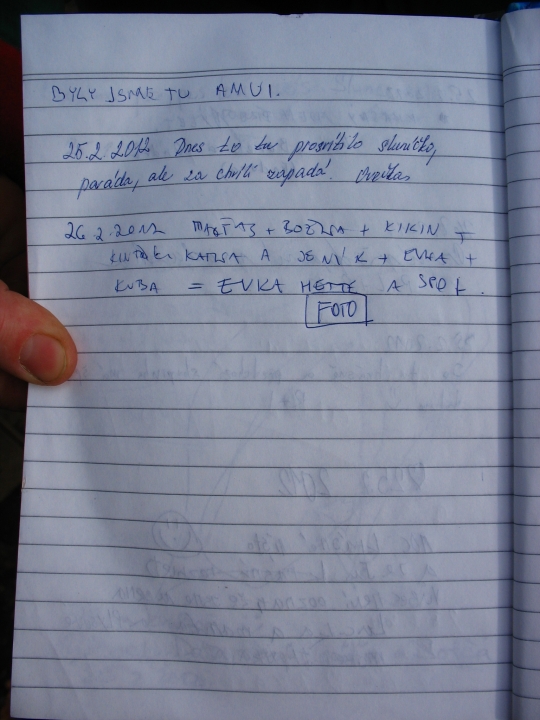 BYLY JSME TU AMUI.
25.2.2012 Dnes to tu prosvítilo sluníčko,
paráda, ale za chvíli zapadá.
26.2.2012 MAŤAS + BOŽKA + KIKIN +
KAŤKA A JENÍK + EVKA +
KUBA = EVKA METTE A SPOL.
FOTO